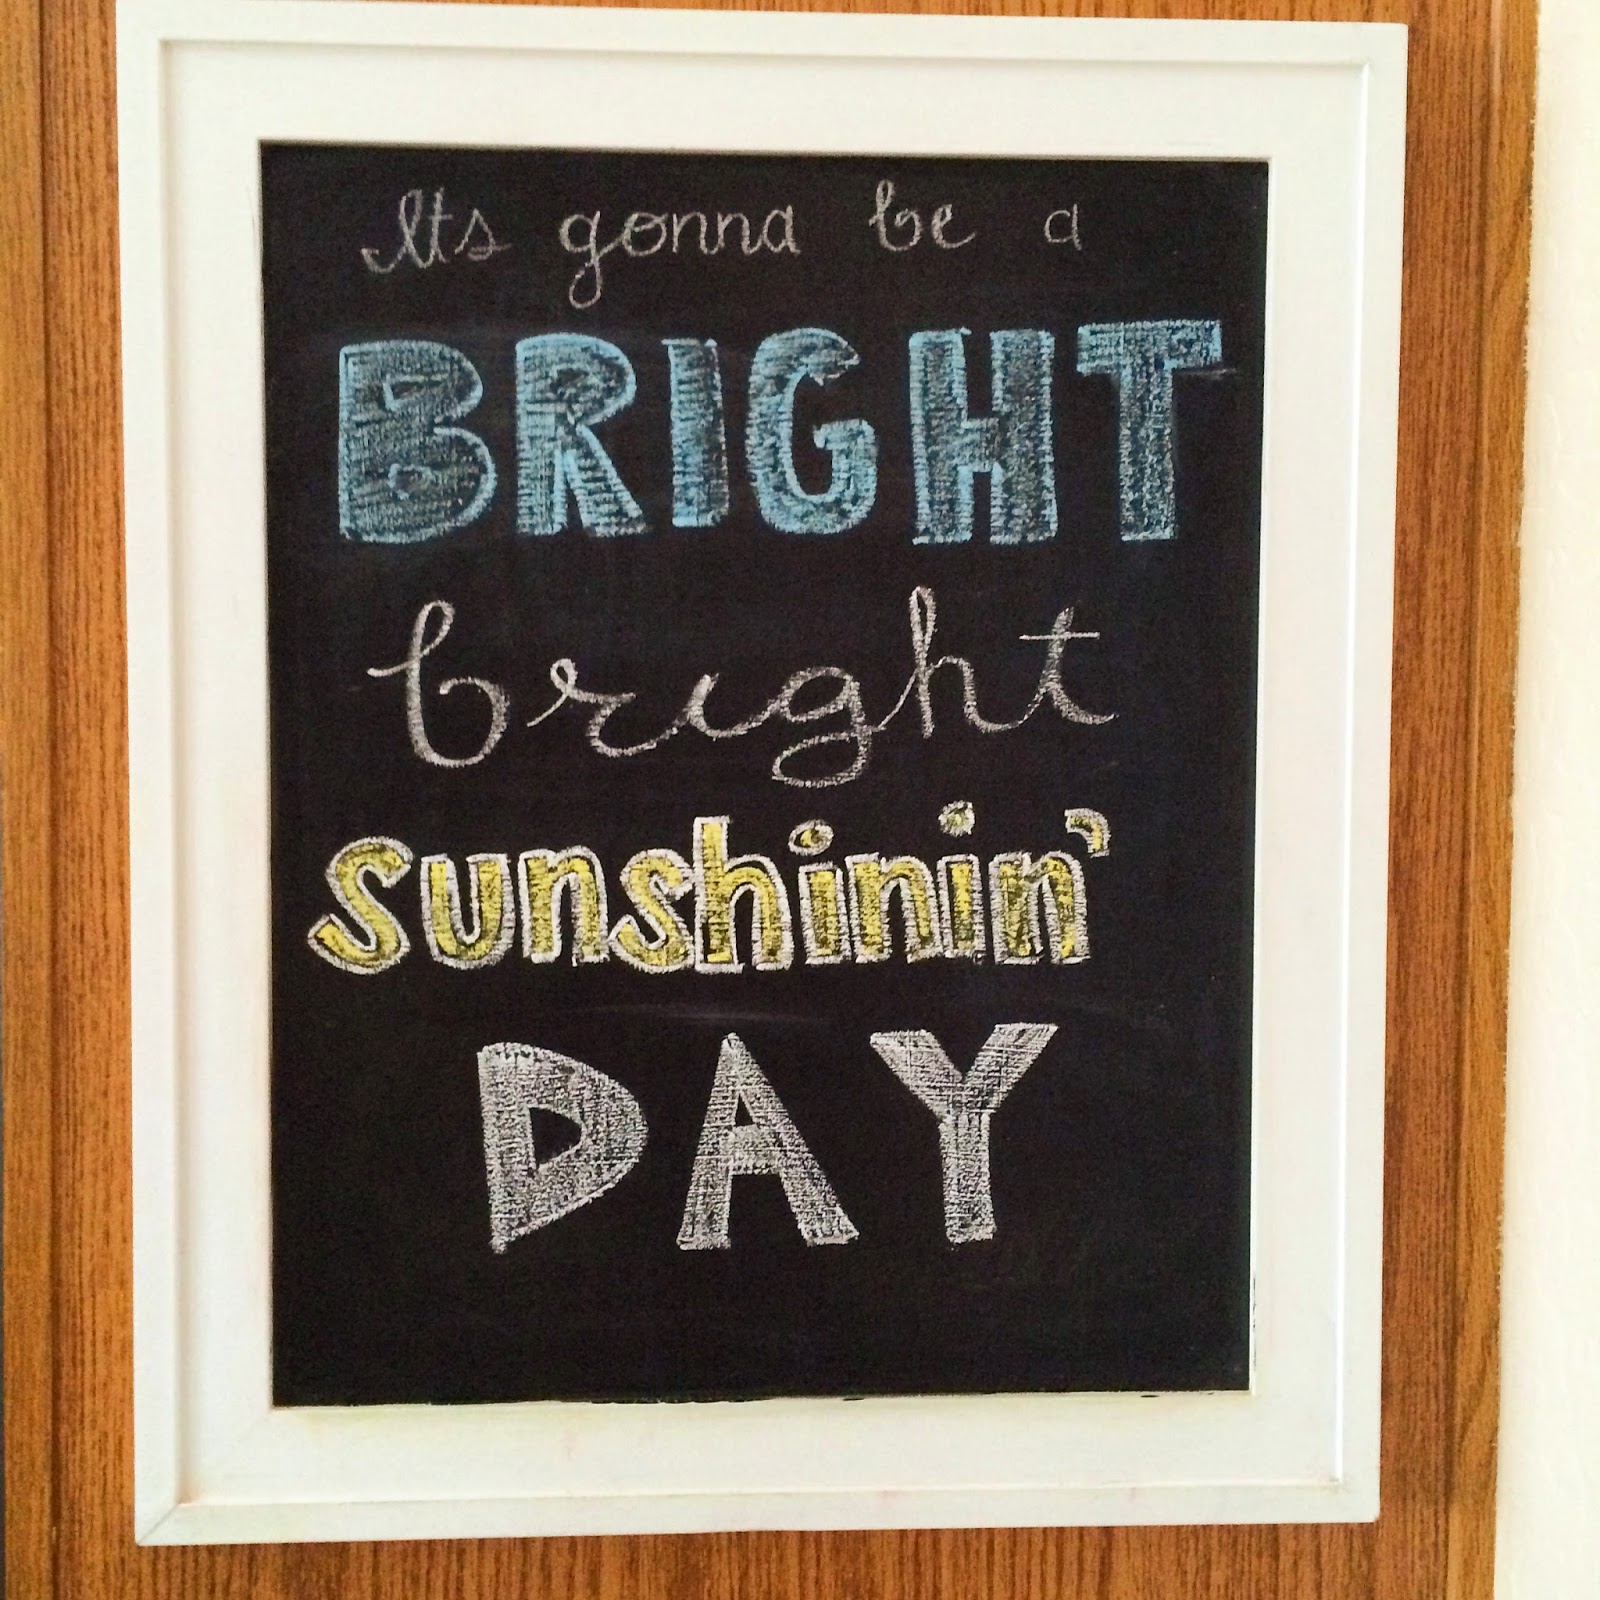 Its gonna be a
BRIGHT
bright
sunshinin'
DAY